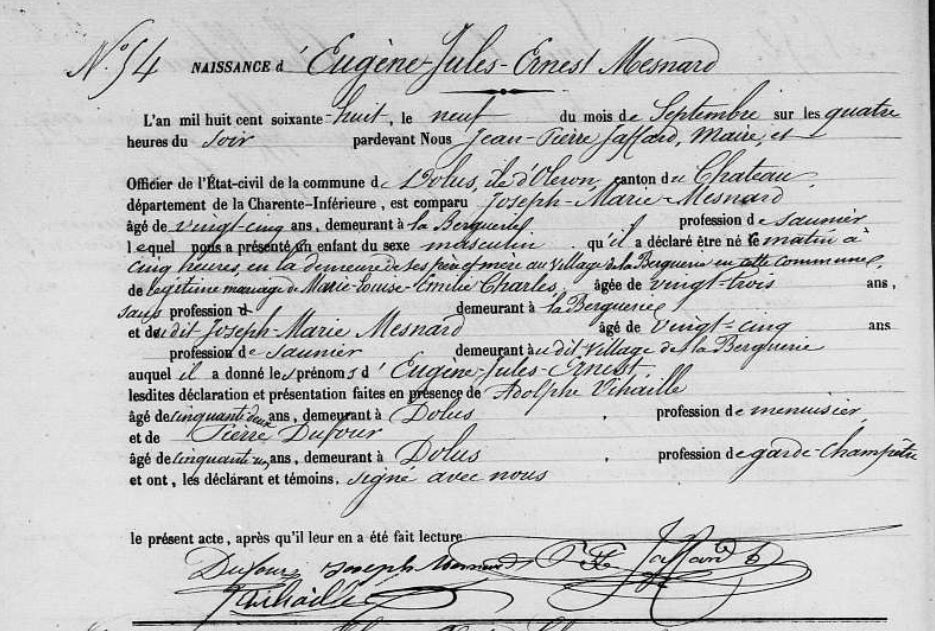 N.º 54 NAISSANCE d' Eugène-Jules-Ernest Mesnard
L'an mil huit cent soixante-huit, le neuf du mois de Septembre sur les quatre
heures du soir pardevant Nous Jean-Pierre Jaffard, Maire, et
Officier de l'État-civil de la commune de Dolus, île d'Oleron, canton du Chateau,
département de la Charente-Inférieure, est comparu Joseph-Marie-Mesnard
âgé de vingt-cinq ans, demeurant à la Berguerie profession de saunier
lequel nous a présenté un enfant du sexe masculin qu'il a déclaré être né le matin à
cinq heures, en la demeure de ses père et mère au village de la Berguerie en cette commune,
de légitime mariage de Marie-Louise-Emilie Charles, âgée de vingt-trois ans,
sans profession demeurant à la Berguerie
et du dit Joseph-Marie Mesnard âgé de vingt-cinq ans
profession de saunier demeurant au dit village de la Berguerie
auquel il a donné les prénoms d'Eugène-Jules-Ernest.
lesdites déclaration et présentation faites en présence de Adolphe Vihaille
âgé de cinquante deux ans, demeurant à Dolus, profession de menuisier
et de Pierre Dufour
âgé de cinquante-un ans, demeurant à Dolus, profession de garde-champêtre
et ont, les déclarant et témoins, signé avec nous
le présent acte, après qu'il leur en a été fait lecture
Dufour Joseph Mesnard Jaffard
Vihaille